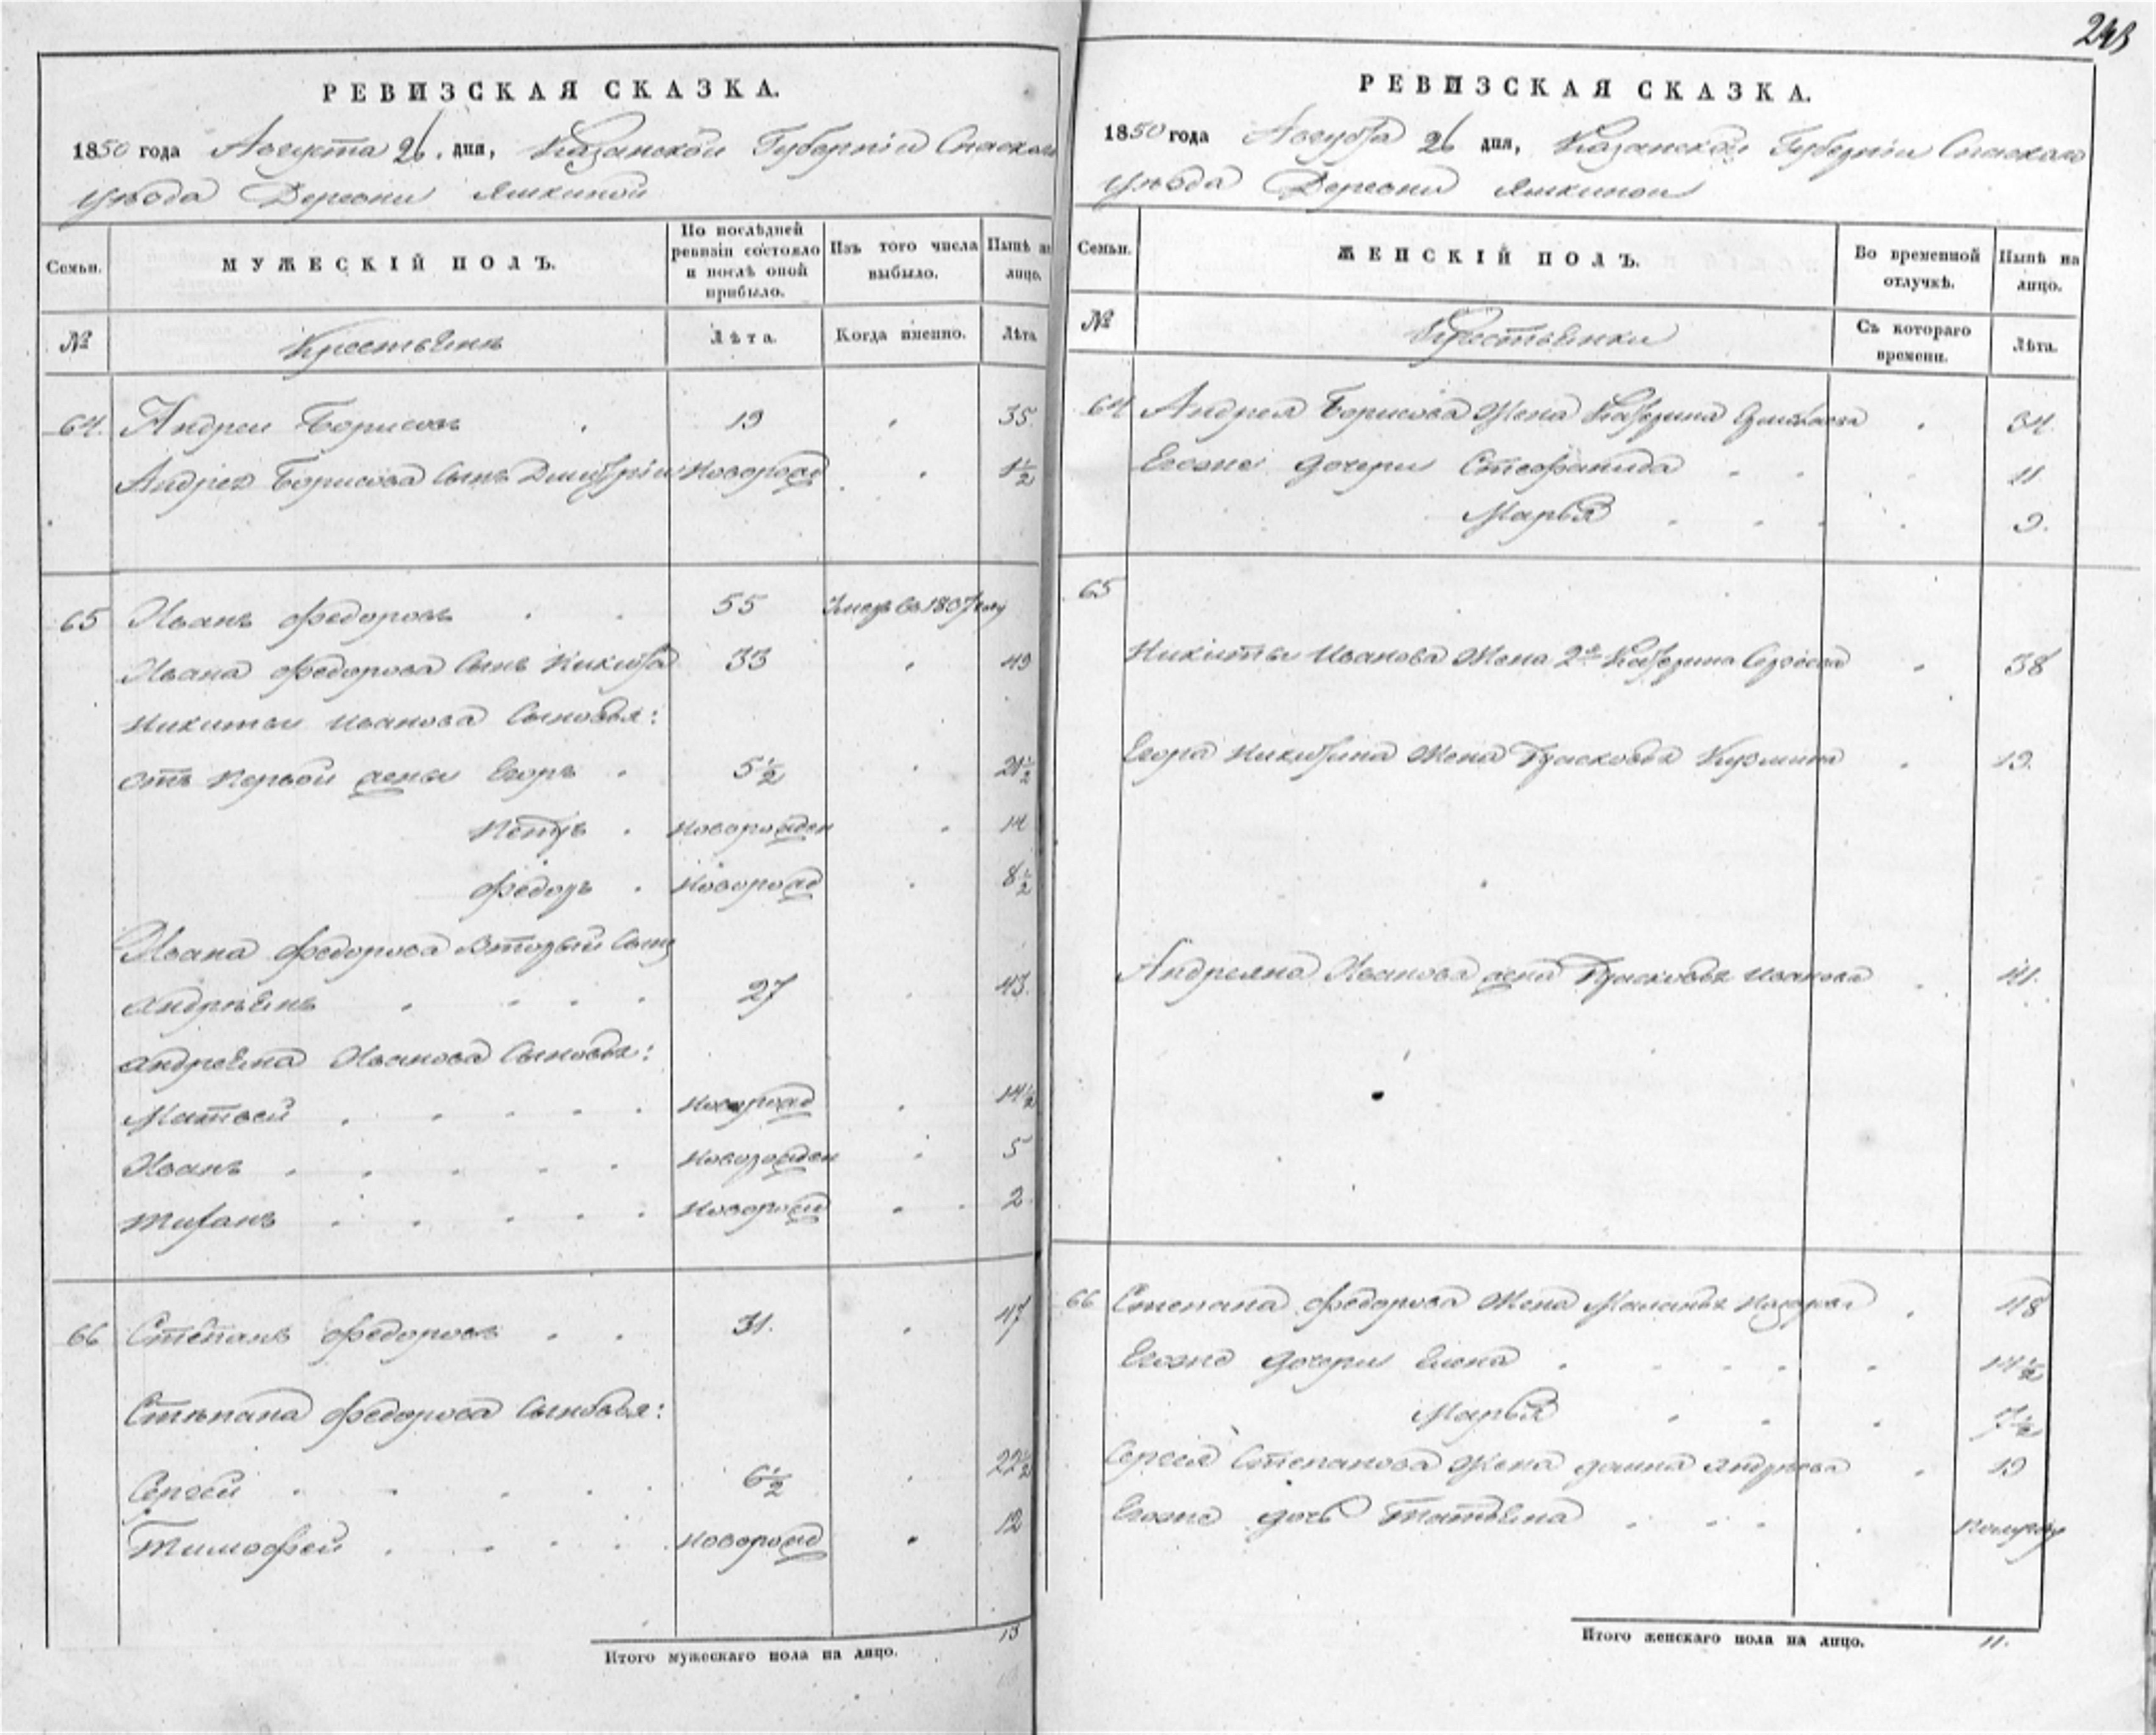 243
РЕВИЗСКАЯ СКАЗКА.
1850 года Августа 26. дня, Казанской Губерніи Спаскаго
уѣзда Деревни Яшкиной
Семьи.
МУЖЕСКІЙ ПОЛЪ.
По послѣдней ревизіи состояло и послѣ оной прибыло.
Изъ того числа выбыло.
Нынѣ на лицо.
№
Крестьяне
Лѣта.
Когда именно.
Лѣта
64. Андрей Борисовъ 19 35.
Андрея Борисова Сынъ Дмитрій Новорожд 1½
65 Иванъ Федоровъ 55
Ивана Федорова Сынъ Никита 33 49
Никиты Иванова Сыновья:
отъ Первой жены Егоръ 5½ 21½
Петръ Новорожден 14
Федоръ Новорожд 8½
Ивана Федорова Вторый Сынъ
Андреянъ 27 43.
Андреяна Иванова Сыновья:
Матвей Новорожд 14½
Иванъ Новорожден 5
Новорожд 2
66 Степанъ Федоровъ 31. 47
Степана Федорова Сыновья:
Сергей 6½ 22½
Тимофей Новорожд 12
Итого мужескаго пола на лицо. 15
РЕВИЗСКАЯ СКАЗКА.
1850 года Августа 26 дня, Казанской Губерніи Спаскаго
уѣзда Деревни Яшкиной
Семьи.
ЖЕНСКІЙ ПОЛЪ.
Во временной отлучкѣ.
Нынѣ на лицо.
№
Крестьянки
Съ котораго времени.
Лѣта.
64 Андрея Борисова Жена Катерина 34.
Егоже дочери Стефанида 11
Марья 9.
65
Никиты Иванова Жена 2я Катерина Сергеева 38
Егора Никитина Жена Прасковья Кузмина 19.
Андреяна Иванова жена Прасковья Иванова 41.
66 Степана Федорова Жена Маланья 48
Егоже дочери Елена 14½
Марья 7½
Сергея Степанова Жена домна Андреева 19
Егоже дочь Татьяна
Итого женскаго пола на лицо. 11.